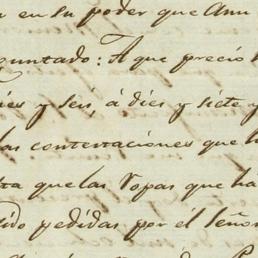 en su poder que Ann
guntado: A que precio
dies y seis, á dies y siete y
las contestaciones que h
ta que las Ropas que há
ido pedidas por él Señor